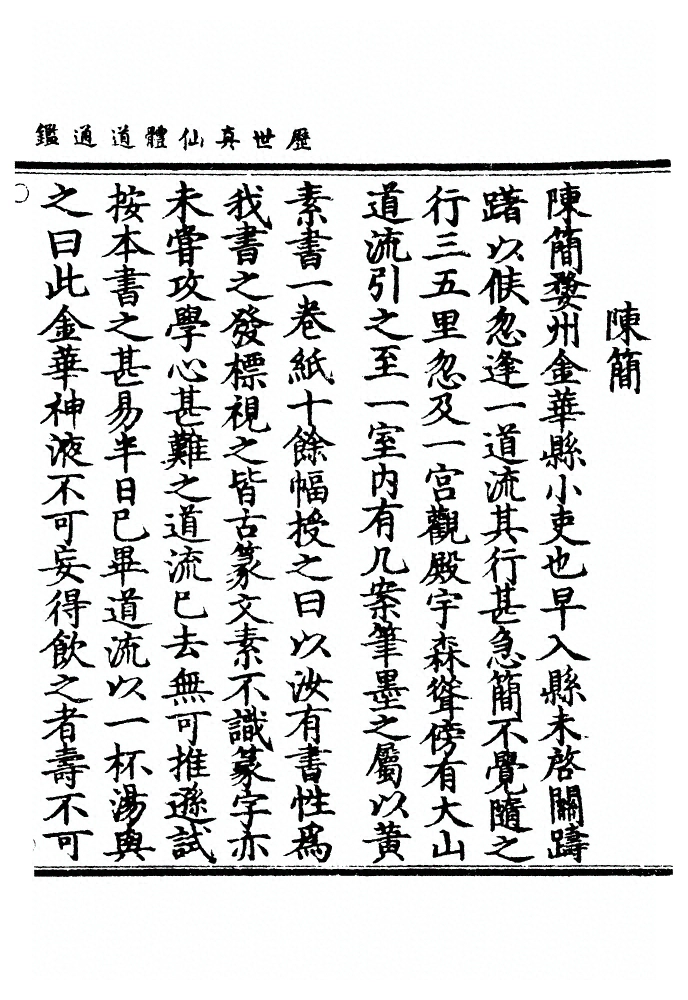 歷世真仙體道通鑑
陳簡
陳簡婺州金華縣小吏也早入縣未啓關躊
躇以候忽逢一道流其行甚急簡不覺隨之
行三五里忽及一宮觀殿宇森聳傍有大山
道流引之至一室內有几案筆墨之屬以黃
素書一卷紙十餘幅授之曰以汝有書性為
我書之發標視之皆古篆文素不識篆字亦
未嘗攻學心甚難之道流已去無可推遜試
按本書之甚易半日已畢道流以一杯湯與
之曰此金華神液不可妄得飲之者壽不可